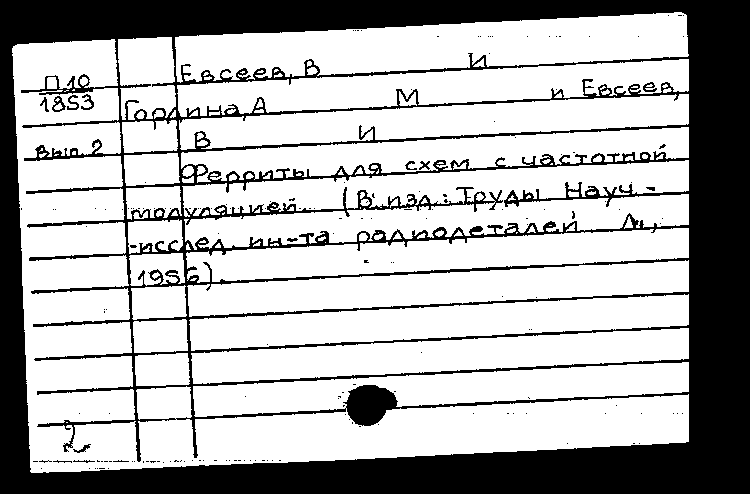 Евсеев, В И
П10
1853
Гордина, А М и Евсеев,
Вып. 2
В И
Ферриты для схем с частотной
модуляцией. (В изд.: Труды Науч-
-исслед. ин-та радиодеталей Л.,
1956).
2